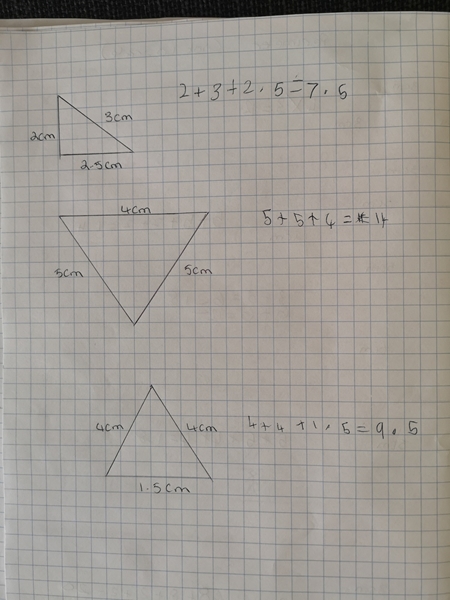 2+3+2.5=7.5
3cm
2cm
2.5cm
4cm
5+5+4=14
5cm
5cm
4cm
4cm
4+4+1.5=9.5
1.5cm